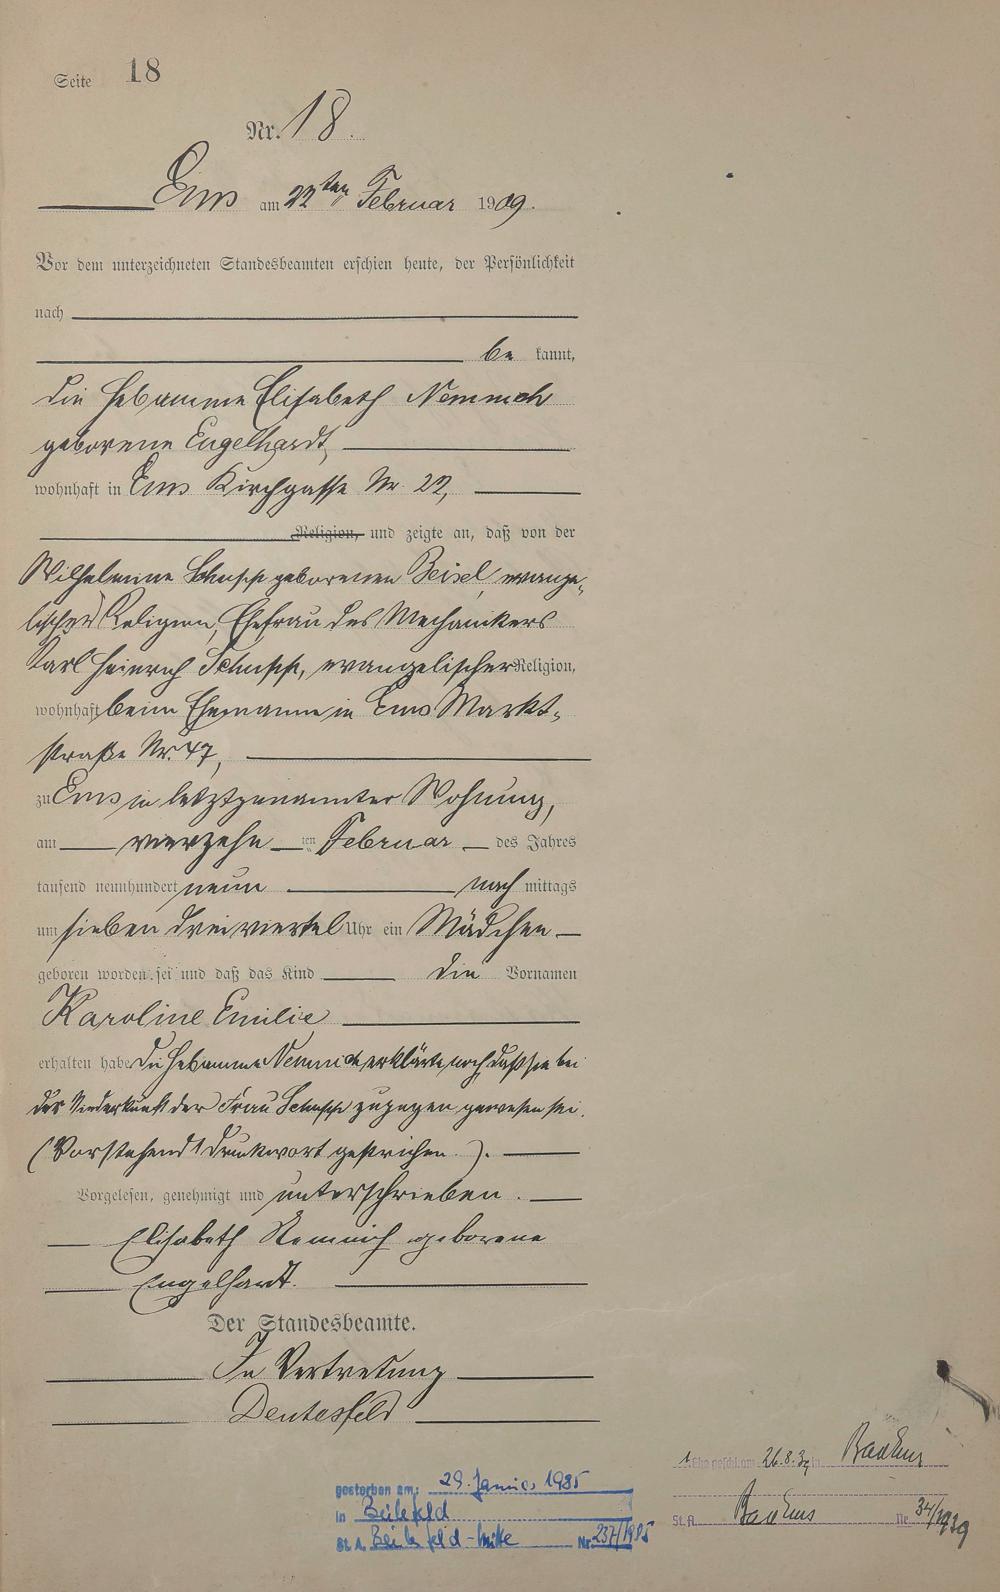 Seite 18
Nr. 18.
Ems am 22ten Februar 1909.
Vor dem unterzeichneten Standesbeamten erschien heute, der Persönlichkeit
nach
be kannt,
die Hebamme Elisabeth Nemnich
geborene Engelhardt,
wohnhaft in Ems Kirchgasse Nr. 22,
Religion, und zeigte an, daß von der
Wilhelmine Schupp geborenen Beisel, evange-
lischer Religion, Ehefrau des Mechanikers
Karl Heinrich Schupp, evangelischer Religion,
wohnhaft beim Ehemanne in Ems Markt-
straße Nr. 47,
zu Ems in letztgenannter Wohnung,
am vierzehn ten Februar des Jahres
tausend neunhundert neun nach mittags
um sieben dreiviertel Uhr ein Mädchen
geboren worden sei und daß das Kind die Vornamen
Karoline Emilie
erhalten habe. Die Hebamme Nemnich erklärte noch, daß sie bei
der Niederkunft der Frau Schupp zugegen gewesen sei.
(Vorstehend 1 Druckwort gestrichen.).
Vorgelesen, genehmigt und unterschrieben.
Elisabeth Nemnich geborene
Engelhardt.
Der Standesbeamte.
In Vertretung
1. Ehe geschl. am 26.8.39 in Bad Ems
St. A. Bad Ems Nr. 34/1939
gestorben am: 29. Januar 1985
in Bielefeld
St. A. Bielefeld-Mitte Nr. 237/1985